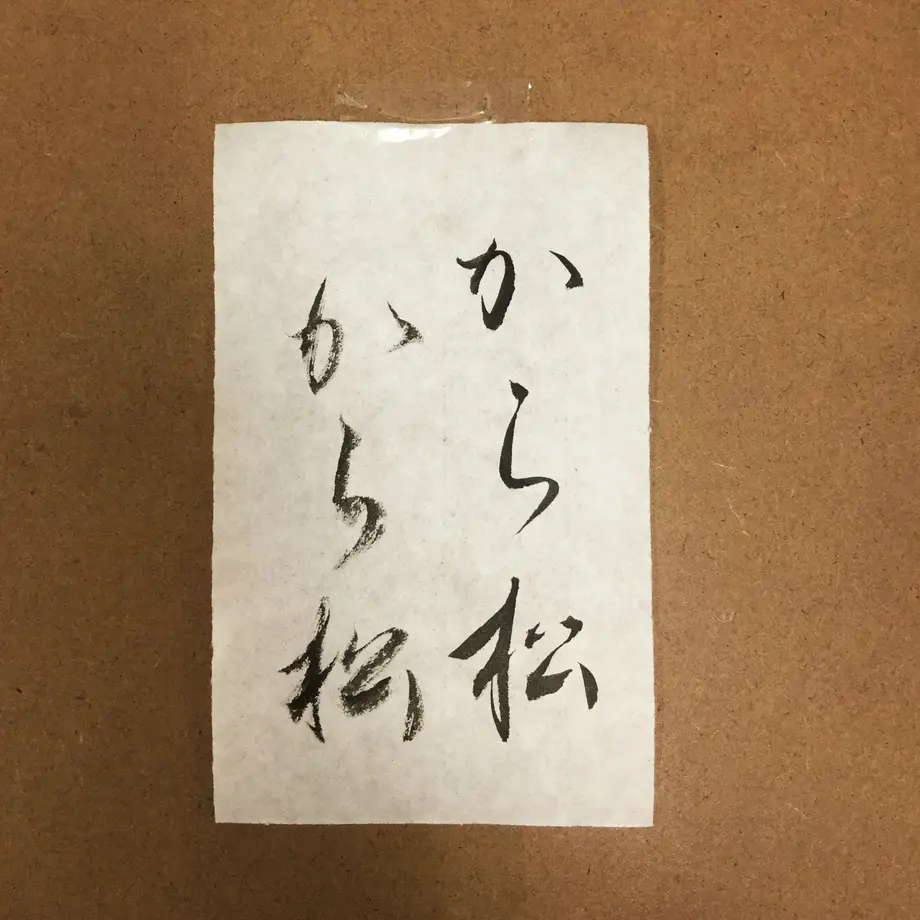 から松
から松